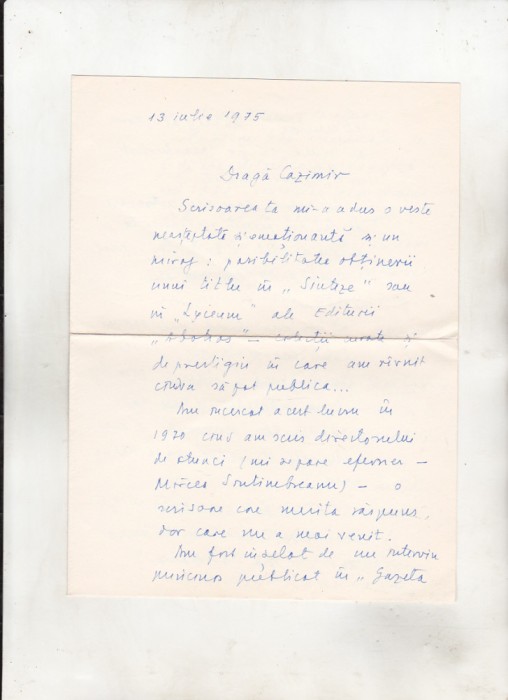 13 iulie 1975
Dragă Cazimir
Scrisoarea ta mi-a adus o veste
neașteptată și emoționantă și un
miraj: posibilitatea obținerii
unui titlu în „Sinteze" sau
în „Lyceum" ale Editurii
„Albatros" – colecții și
de prestigiu în care am rîvnit
cîndva să pot publica...
Am încercat acest lucru în
1970 cînd am scris directorului
de atunci (mi se pare efemer –
Mircea Sîntimbreanu) – o
scrisoare care merita răspuns,
dar care nu a mai venit.
Am fost înșelat de un interviu
publicat în „Gazeta